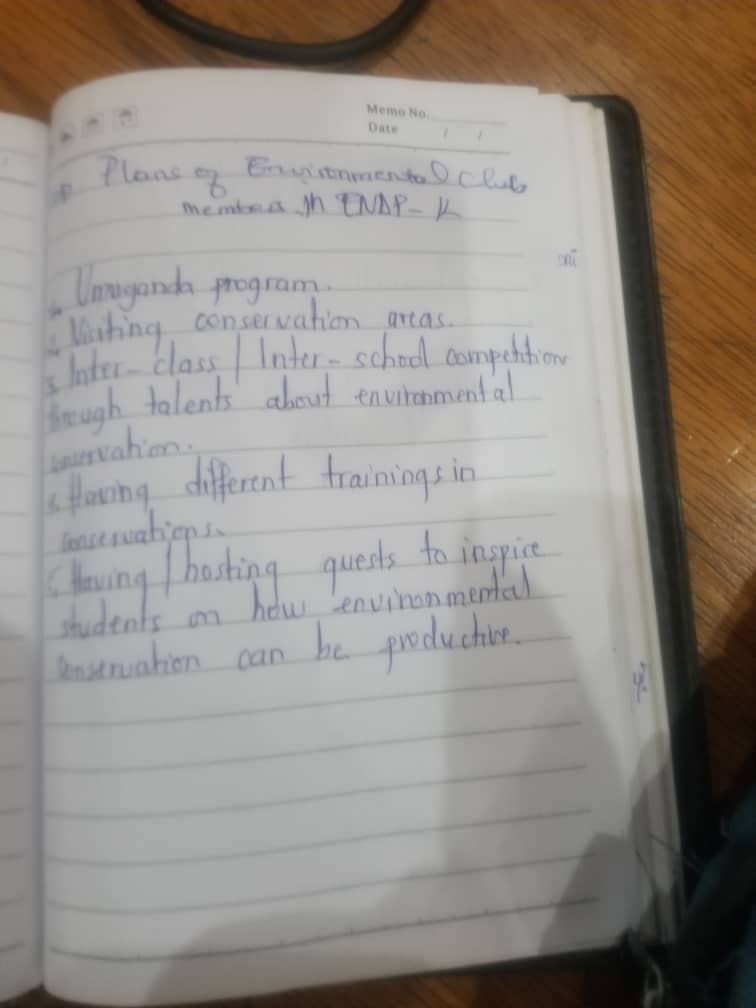 Memo No.
Date / /
Plans of Environmental Club
members in ENDP-K
Umuganda program.
2. Visiting conservation areas.
3. Inter-class / Inter-school competition
through talents about environmental
conservation.
4. Having different trainings in
conservations.
5. Having / hosting guests to inspire
students on how environmental
conservation can be productive.